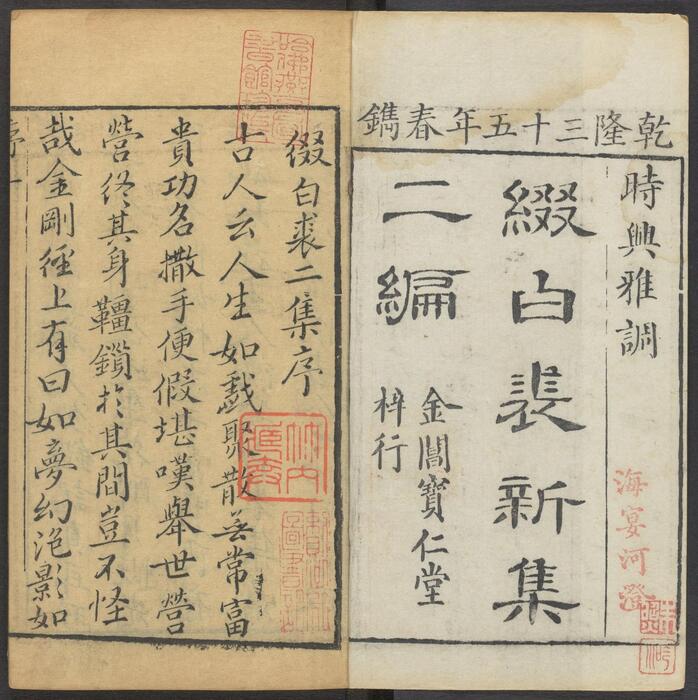 乾隆三十五年春鐫
時興雅調
海宴河澄
綴白裘新集
二編
金閶寶仁堂
梓行
綴白裘二集序
古人云人生如戯聚散無常富
貴功名撒手便假堪嘆舉世營
營終其身韁鎖於其間豈不怪
哉金剛經上有曰如夢幻泡影如
竹内